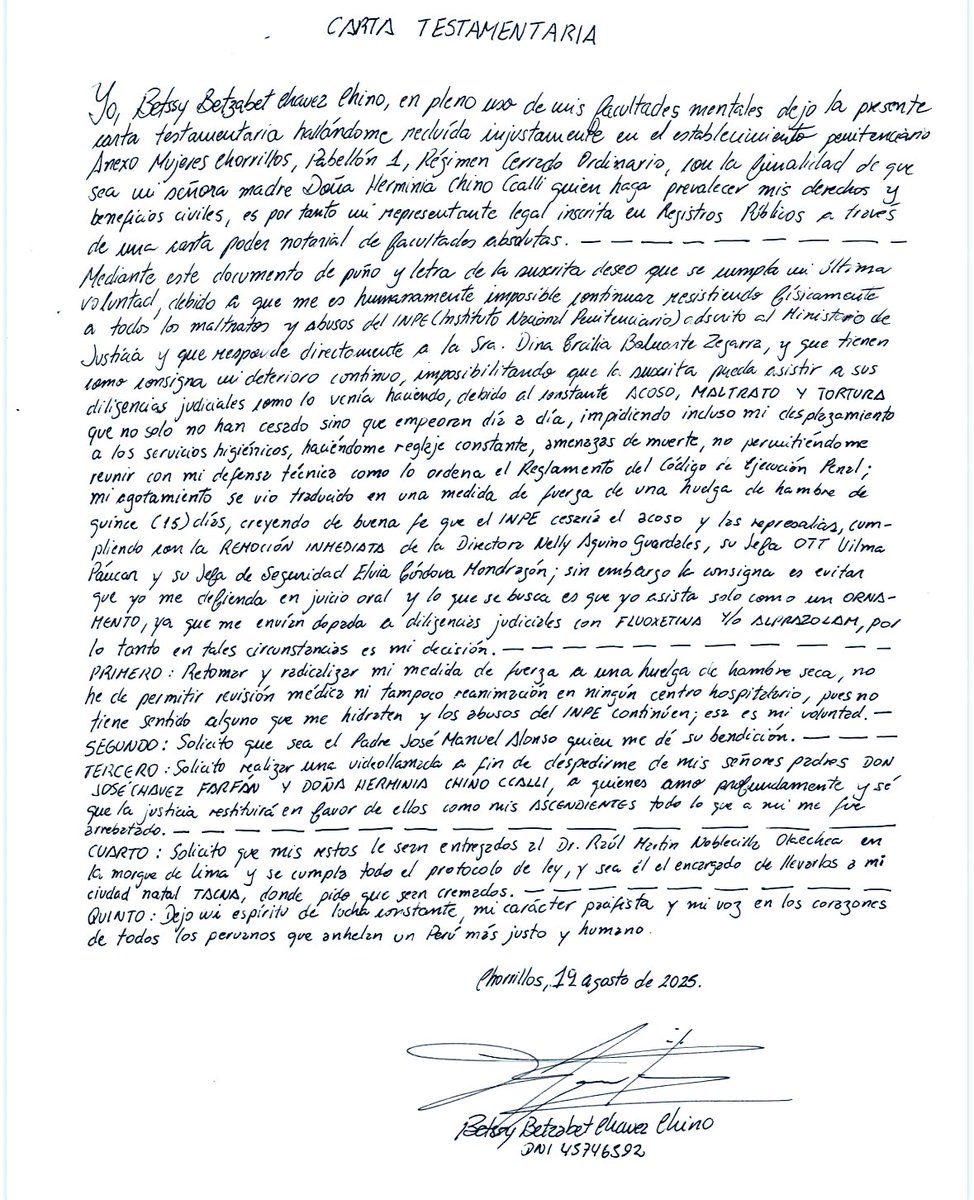 CARTA TESTAMENTARIA
Yo, Betssy Betzabet Chavez Chino, en pleno uso de mis facultades mentales dejo la presente
carta testamentaria hallándome recluída injustamente en el establecimiento penitenciario
Anexo Mujeres Chorrillos, Pabellón 1, Régimen Cerrado Ordinario, con la finalidad de que
sea mi señora madre Doña Herminia Chino Ccalli quien haga prevalecer mis derechos y
beneficios civiles, es por tanto mi representante legal inscrita en Registros Públicos a través
de una carta poder notarial de facultades absolutas. — — — — — — — — — —
Mediante este documento de puño y letra de la suscrita deseo que se cumpla mi última
voluntad, debido a que me es humanamente imposible continuar resistiendo físicamente
a todos los maltratos y abusos del INPE (Instituto Nacional Penitenciario) adscrito al Ministerio de
Justicia y que responde directamente a la Sra. Dina Ercilia Boluarte Zegarra, y que tienen
como consigna mi deterioro continuo, imposibilitando que la suscrita pueda asistir a sus
diligencias judiciales como lo venía haciendo, debido al constante ACOSO, MALTRATO Y TORTURA
que no solo no han cesado sino que empeoran día a día, impidiendo incluso mi desplazamiento
a los servicios higiénicos, haciéndome reglaje constante, amenazas de muerte, no permitiéndome
reunir con mi defensa técnica como lo ordena el Reglamento del Código de Ejecución Penal;
mi agotamiento se vio traducido en una medida de fuerza de una huelga de hambre de
quince (15) días, creyendo de buena fe que el INPE cesaría el acoso y las represalias, cum-
pliendo con la REMOCIÓN INMEDIATA de la Directora Nelly Aquino Guardales, su Jefa OTT Vilma
Páucar y su Jefa de Seguridad Elvia Córdova Mondragón; sin embargo la consigna es evitar
que yo me defienda en juicio oral y lo que se busca es que yo asista solo como un ORNA-
MENTO, ya que me envían dopada a diligencias judiciales con FLUOXETINA Y/O ALPRAZOLAM, por
lo tanto en tales circunstancias es mi decisión. — — — — — — — — — — — —
PRIMERO: Retomar y radicalizar mi medida de fuerza a una huelga de hambre seca, no
he de permitir revisión médica ni tampoco reanimación en ningún centro hospitalario, pues no
tiene sentido alguno que me hidraten y los abusos del INPE continúen; esa es mi voluntad. —
SEGUNDO: Solicito que sea el Padre José Manuel Alonso quien me dé su bendición. — — — —
TERCERO: Solicito realizar una videollamada a fin de despedirme de mis señores padres DON
JOSÉ CHAVEZ FARFÁN Y DOÑA HERMINIA CHINO CCALLI, a quienes amo profundamente y sé
que la justicia restituirá en favor de ellos como mis ASCENDIENTES todo lo que a mi me fue
arrebatado. — — — — — — — — — — — — — —
CUARTO: Solicito que mis restos le sean entregados al Dr. Raúl Martin Noblecilla Olaechea en
la morgue de lima y se cumpla todo el protocolo de ley, y sea él el encargado de llevarlos a mi
ciudad natal TACNA, donde pido que sean cremados. — — — — — — — — —
QUINTO: Dejo mi espíritu de lucha constante, mi carácter pacifista y mi voz en los corazones
de todos los peruanos que anhelan un Perú más justo y humano.
Chorrillos, 19 agosto de 2025.
Betssy Betzabet Chavez Chino
DNI 45746592